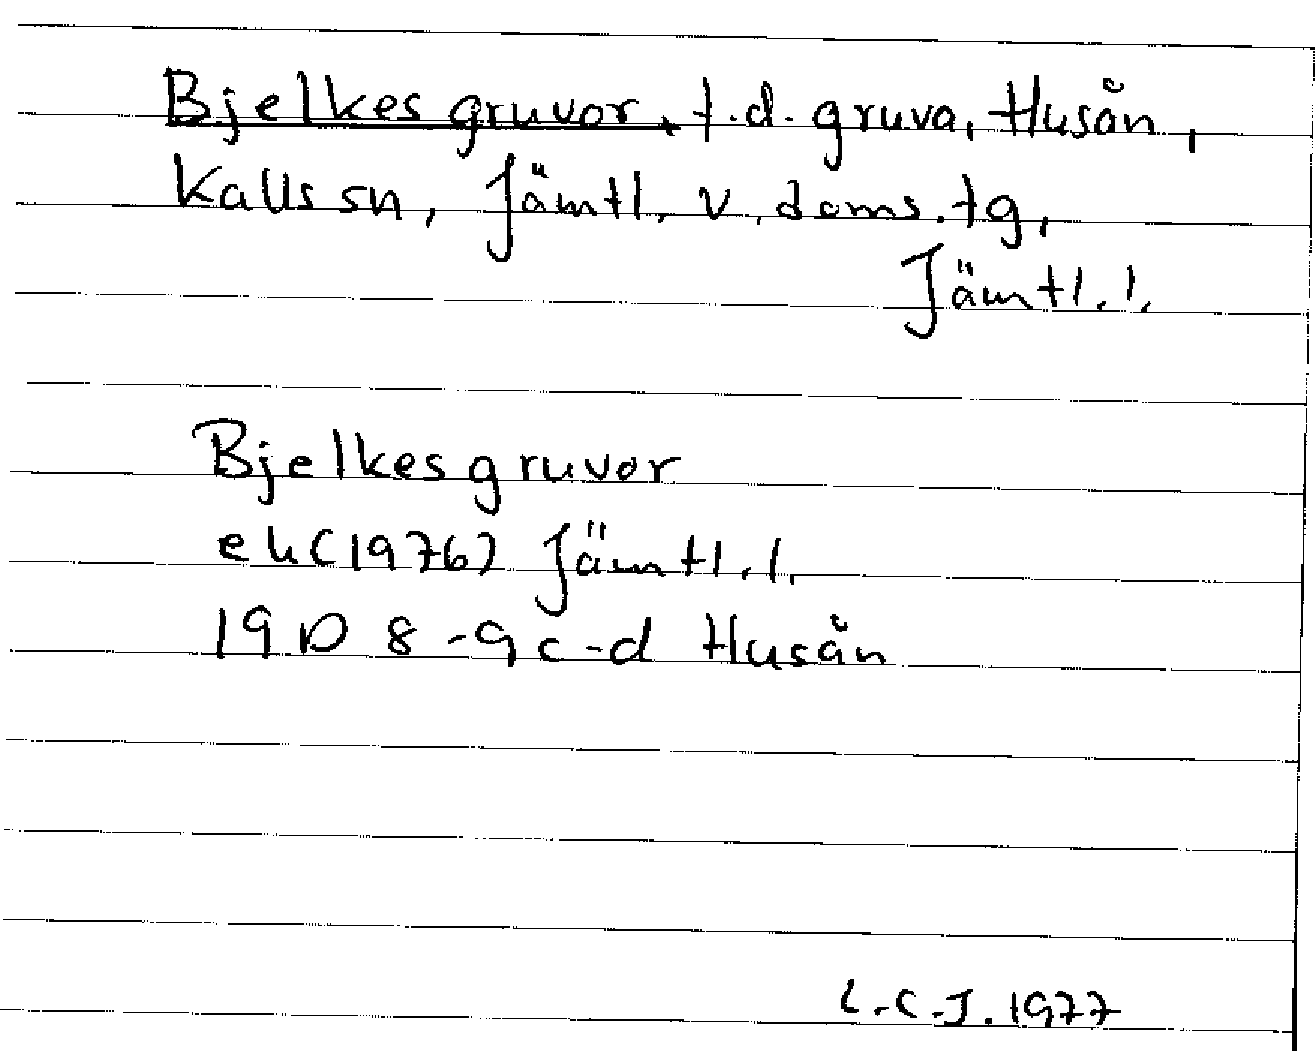 Bjelkes gruvor, f.d. gruva, Husån,
Kalls sn, Jämtl. v. doms.tg,
Jämtl. l.
Bjelkes gruvor
ek (1976) Jämtl. l.
19D 8-9 c-d Husån
L.C.J. 1977